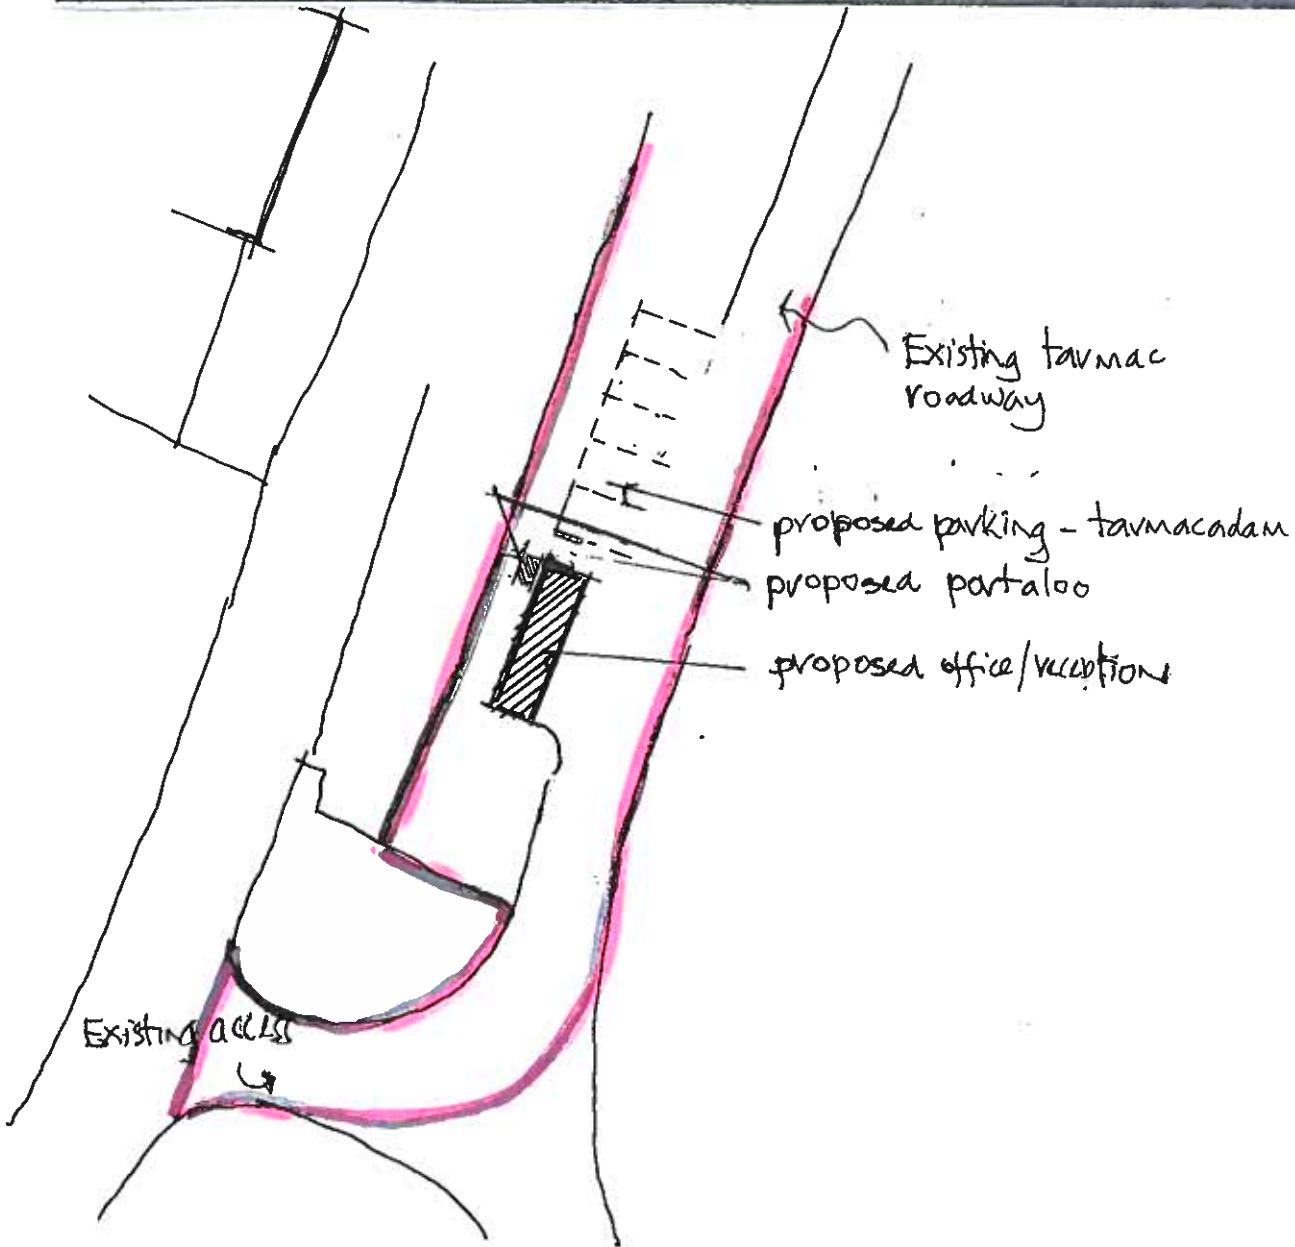 Existing tarmac
roadway
proposed parking - tarmacadam
proposed portaloo
proposed office/reception
Existing access